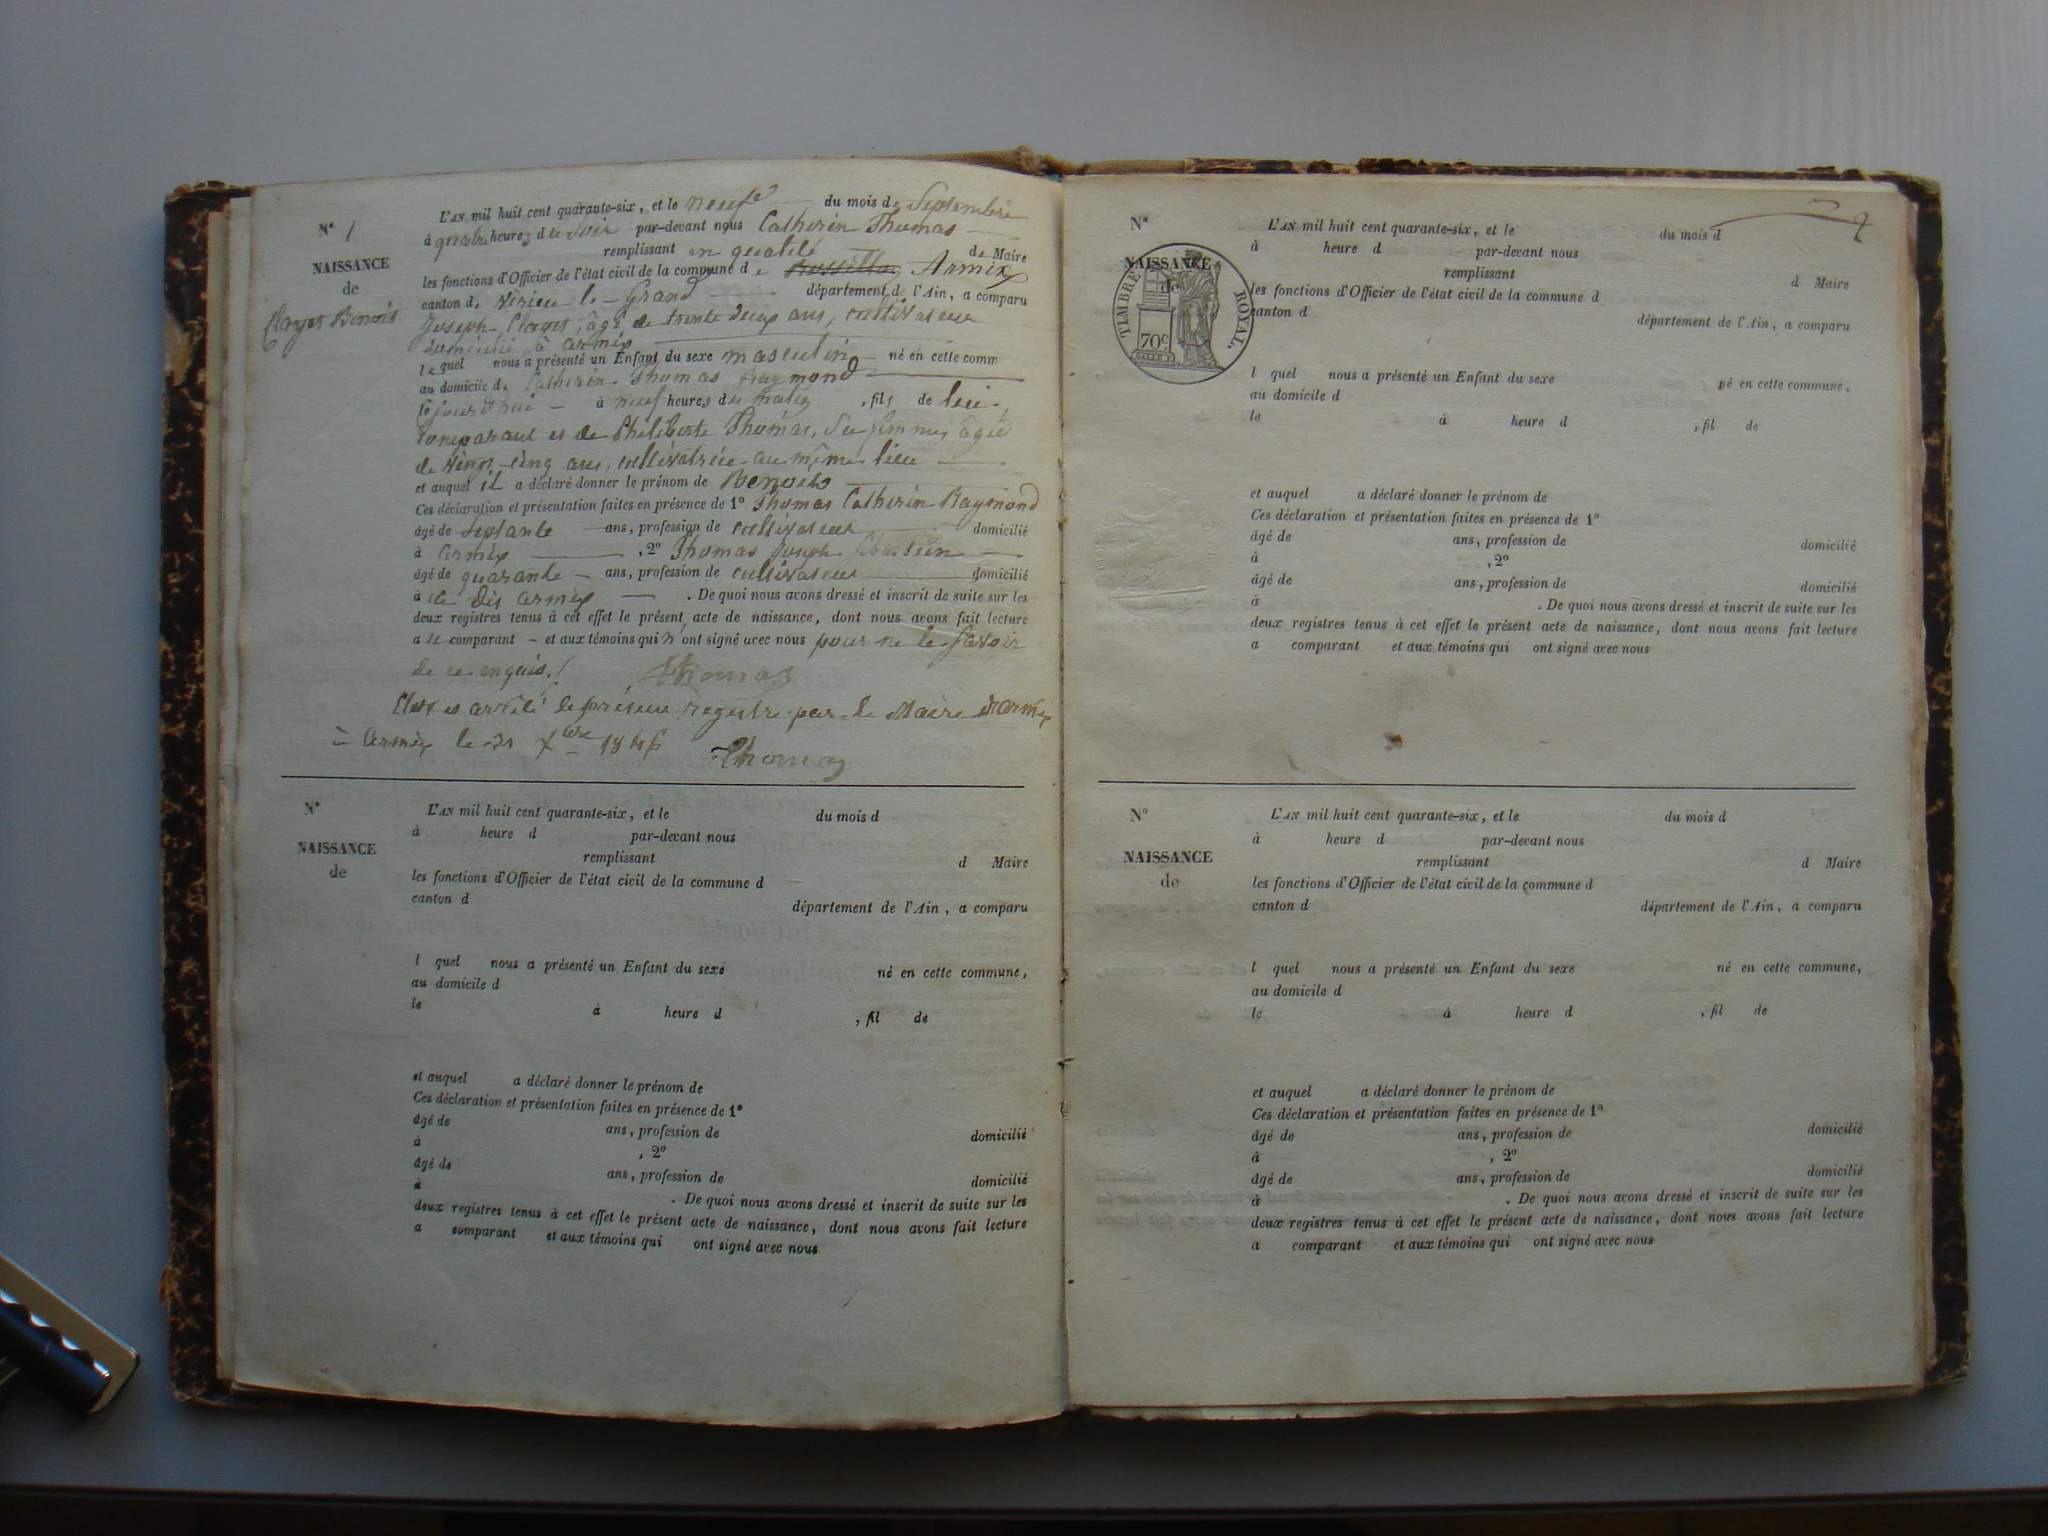 N° 1
NAISSANCE
de
Benoit
L'AN mil huit cent quarante-six, et le neuf du mois de Septembre
à quatre heures du soir par-devant nous Catherin Thomas
remplissant en qualité de Maire
les fonctions d'Officier de l'état civil de la commune d Armix
canton de Virieu-le-Grand département de l'Ain, a comparu
Joseph âgé de trente deux ans, cultivateur
domicilié à armix
lequel nous a présenté un Enfant du sexe masculin né en cette comm
au domicile de Catherin Thomas Raymond
le jourd'hui à neuf heures du matin, fils de lui,
Comparant et de Philiberte Thomas, Sa femme, âgée
de vingt-cinq ans, cultivatrice au même lieu
et auquel il a déclaré donner le prénom de Benoit
Ces déclaration et présentation faites en présence de 1° Thomas Catherin Raymond
âgé de septante ans, profession de cultivateur domicilié
à armix, 2° Thomas Joseph
âgé de quarante ans, profession de cultivateur domicilié
à dit armix. De quoi nous avons dressé et inscrit de suite sur les
deux registres tenus à cet effet le présent acte de naissance, dont nous avons fait lecture
a le comparant et aux témoins qui n'ont signé avec nous pour ne le savoir
de ce enquis.
Thomas
Clos et arrêté le présent registre par le Maire d'armix
à armix le 31 Xbre 1846 Thomas
N°
NAISSANCE
de
L'AN mil huit cent quarante-six, et le du mois d
à heure d par-devant nous
remplissant d Maire
les fonctions d'Officier de l'état civil de la commune d
canton d département de l'Ain, a comparu
l quel nous a présenté un Enfant du sexe né en cette commune,
au domicile d
le à heure d , fil de
et auquel a déclaré donner le prénom de
Ces déclaration et présentation faites en présence de 1°
âgé de ans, profession de domicilié
à , 2°
âgé de ans, profession de domicilié
à . De quoi nous avons dressé et inscrit de suite sur les
deux registres tenus à cet effet le présent acte de naissance, dont nous avons fait lecture
a comparant et aux témoins qui ont signé avec nous
N°
NAISSANCE
de
TIMBRE ROYAL.
70c.
L'AN mil huit cent quarante-six, et le du mois d
à heure d par-devant nous
remplissant d Maire
les fonctions d'Officier de l'état civil de la commune d
canton d département de l'Ain, a comparu
l quel nous a présenté un Enfant du sexe né en cette commune,
au domicile d
le à heure d , fil de
et auquel a déclaré donner le prénom de
Ces déclaration et présentation faites en présence de 1°
âgé de ans, profession de domicilié
à , 2°
âgé de ans, profession de domicilié
à . De quoi nous avons dressé et inscrit de suite sur les
deux registres tenus à cet effet le présent acte de naissance, dont nous avons fait lecture
a comparant et aux témoins qui ont signé avec nous
N°
NAISSANCE
de
L'AN mil huit cent quarante-six, et le du mois d
à heure d par-devant nous
remplissant d Maire
les fonctions d'Officier de l'état civil de la commune d
canton d département de l'Ain, a comparu
l quel nous a présenté un Enfant du sexe né en cette commune,
au domicile d
le à heure d , fil de
et auquel a déclaré donner le prénom de
Ces déclaration et présentation faites en présence de 1°
âgé de ans, profession de domicilié
à , 2°
âgé de ans, profession de domicilié
à . De quoi nous avons dressé et inscrit de suite sur les
deux registres tenus à cet effet le présent acte de naissance, dont nous avons fait lecture
a comparant et aux témoins qui ont signé avec nous